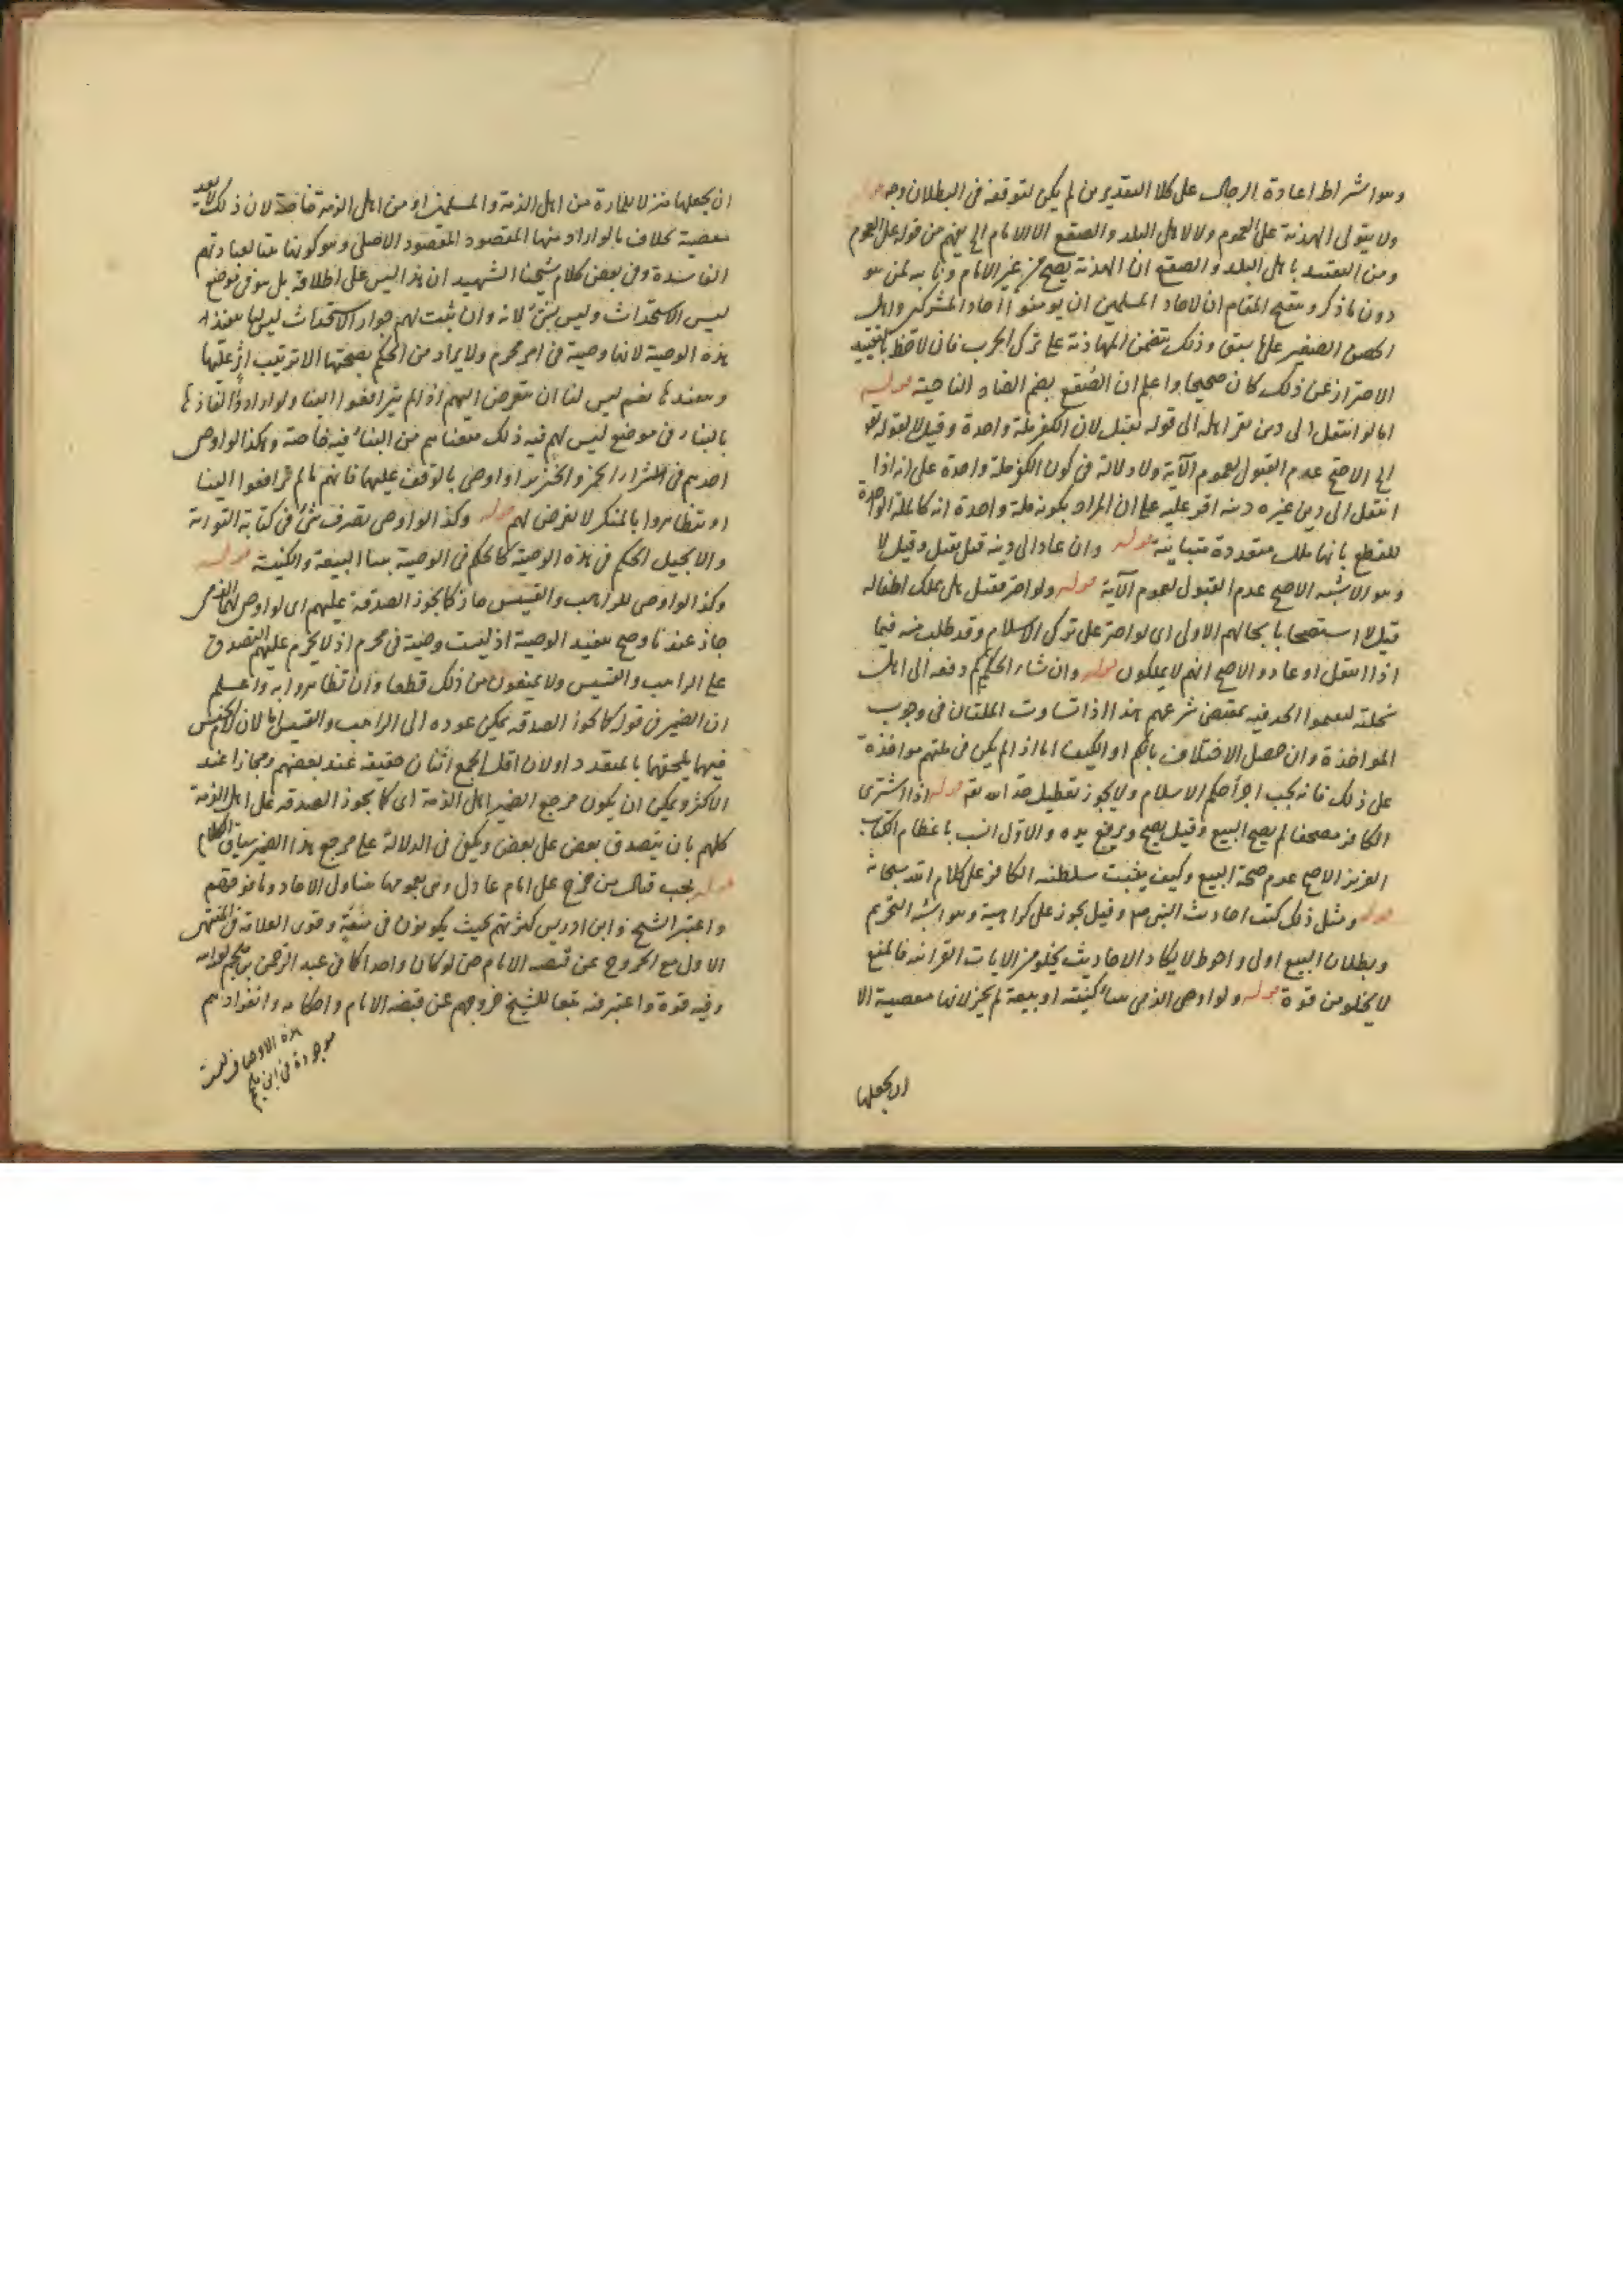 وهو اشتراط اعادة الرجال على كلا التقديرين لم يكن لتوقفه في البطلان وجه قوله
ولا يتولى الهدنة على العموم ولا لاهل البلد والصقع الا الامام الخ يفهم من قوله على العموم
ومن التقييد باهل البلد والصقع ان الهدنة يصح من غير الامام ونايبه لمن هو
دون ما ذكر وتنقيح المقام ان لاحاد المسلمين ان يومنوا آحاد المشركين واهل
الحصن الصغير على ما سبق وذلك يتضمن المهادنة على ترك الحرب فان لاحظ بالتقييد
الاحتراز عن ذلك كان صحيحا واعلم ان الصقع بضم الصاد الناحية قوله
اما لو انتقل الى دين يقر اهله الى قوله يقبل لان الكفر ملة واحدة وقيل لا لقوله تع
الخ الاصح عدم القبول لعموم الآية ولا دلالة في كون الكفر ملة واحدة على انه اذا
انتقل الى دين غيره دينه اقر عليه على ان المراد بكونه ملة واحدة انه كالملة الواحدة
للقطع بانها ملل متعددة متباينة قوله وان عاد الى دينه قيل يقبل وقيل لا
وهو الاشبه الاصح عدم القبول لعموم الآية قوله ولو اصر فقتل هل يملك اطفاله
قيل لا استصحابا بحالهم الاول اى لو اصر على ترك الاسلام وقد طلب منه فيما
اذا انتقل او عاد والاصح انهم لا يملكون قوله وان شاء الحاكم دفعه الى اهل
نحلته ليقيموا الحد فيه بمقتضى شرعهم هذا اذا تساوت الملتان في وجوب
المواخذة وان حصل الاختلاف بالكم او الكيف اما اذا لم يكن في ملتهم مواخذة
على ذلك فانه يجب اجراء حكم الاسلام ولا يجوز تعطيل حد الله تع قوله اذا اشترى
الكافر مصحفا لم يصح البيع وقيل يصح ويرفع يده والاول انسب باعظام الكتاب
العزيز الاصح عدم صحة البيع وكيف يثبت سلطنة الكافر على كلام الله سبحانه
قوله ومثل ذلك كتب احاديث النبي صلع وقيل يجوز على كراهية وهو اشبه التحريم
وبطلان البيع اولى واحوط لا يكاد الاحاديث يخلو من الايات القرانية فالمنع
لا يخلو من قوة قوله ولو اوصى الذمي ببناء كنيسة او بيعة لم يجز لانها معصية الا
ان يجعلها
ان يجعلها منزلا للمارة من اهل الذمة والمسلمين او من اهل الذمة خاصة لان ذلك لا يعد
معصية بخلاف ما لو اراد منها المقصود المقصود الاصلى وهو كونها متعبدا لعباداتهم
الفاسدة وفي بعض كلام شيخنا الشهيد ان هذا ليس على اطلاقه بل هو في موضع
ليس الاستحداث وليس بشئ لانه وان ثبت لهم جواز الاستحداث ليس لنا تنفيذ
هذه الوصية لانها وصية في امر محرم ولا يراد من الحكم بصحتها الا ترتيب اثر عليها
وتنفيذها نعم ليس لنا ان نتعرض اليهم اذا لم يترافعوا الينا ولو ارادوا انفاذها
بالبناء في موضع ليس لهم فيه ذلك منعناهم من البناء فيه خاصة وهكذا لو اوصى
احدهم في شراء الخمر والخنزير او اوصى بالوقف عليهما فانهم ما لم يترافعوا الينا
او يتظاهروا بالمنكر لا نعرض لهم قوله وكذا لو اوصى بصرف شئ في كتابة التوراة
والانجيل الحكم في هذه الوصية كالحكم في الوصية ببناء البيعة والكنيسة قوله
وكذا لو اوصى للراهب والقسيس جاز كما يجوز الصدقة عليهم اى لو اوصى لهما الذمى
جاز عندنا وصح تنفيذ الوصية اذ ليست وصية في محرم اذ لا يحرم عليهم التصدق
على الراهب والقسيس ولا يمنعون من ذلك قطعا وان تظاهروا به واعلم
ان الضمير في قوله كما يجوز الصدقة يمكن عوده الى الراهب والقسيس لان الجنس
فيهما يلحقهما بالمتعدد او لان اقل الجمع اثنان حقيقة عند بعضهم ومجازا عند
الاكثر ويمكن ان يكون مرجع الضمير اهل الذمة اى كما يجوز الصدقة على اهل الذمة
كلهم بان يتصدق بعض على بعض ويكفى في الدلالة على مرجع هذا الضمير سياق الكلام
قوله يجب قتال من خرج على امام عادل وهى بعمومها يتناول الاحاد وما فوقهم
واعتبر الشيخ وابن ادريس كثرتهم بحيث يكونون في منعة وقوى العلامة في المنتهى
الاول مع الخروج عن قبضة الامام حتى لو كان واحدا كما في عبد الرحمن بن ملجم لعنه الله
وفيه قوة واعتبر فيه تبعا للشيخ خروجهم عن قبضة الامام واحكامه وانفرادهم
هذه الاوصاف ليست
موجودة في ابن ملجم